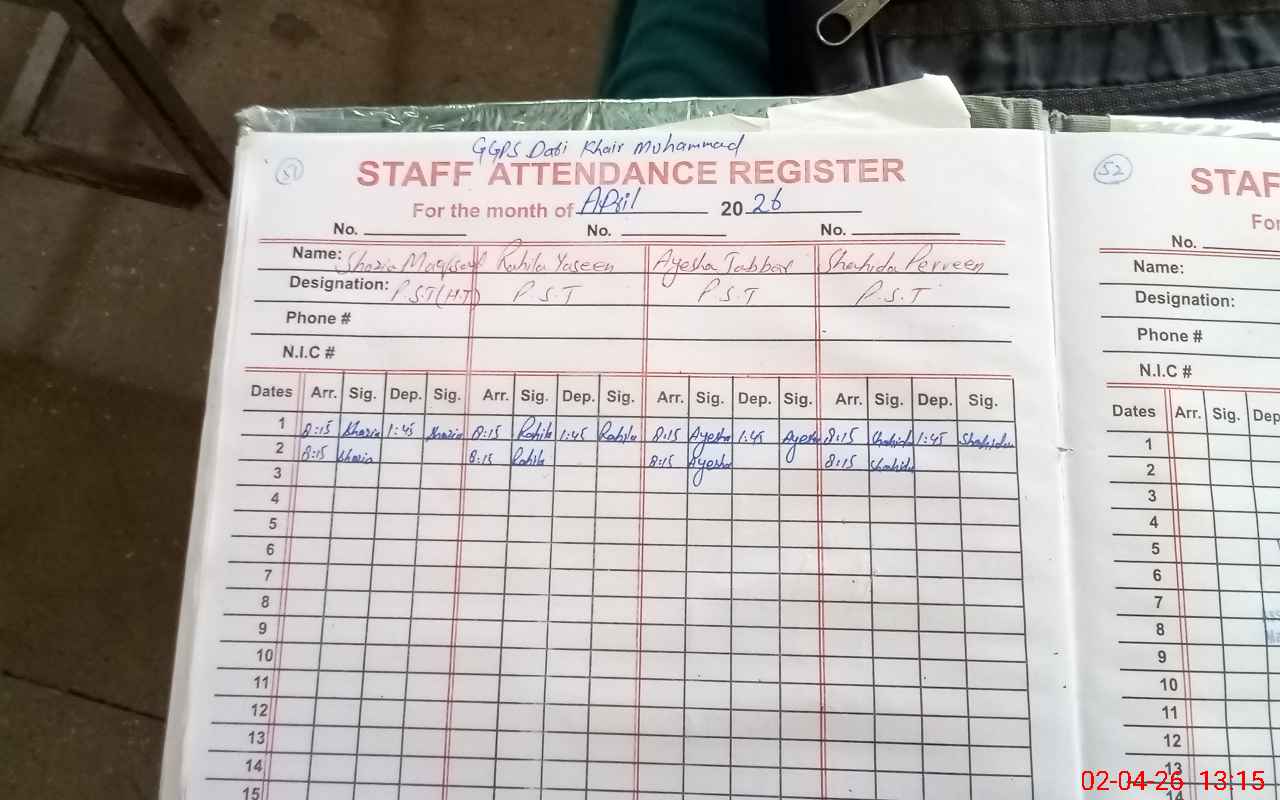 GGPS Dabi Khair Muhammad
51
STAFF ATTENDANCE REGISTER
For the month of April 2026
No. No. No.
Name: Shazia Maqsood Rahila Yaseen Ayesha Jabbar Shahida Perveen
Designation: P.S.T(H.T) P.S.T P.S.T P.S.T
Phone #
N.I.C #
Dates Arr. Sig. Dep. Sig. Arr. Sig. Dep. Sig. Arr. Sig. Dep. Sig. Arr. Sig. Dep. Sig.
1 8:15 Shazia 1:45 Shazia 8:15 Rahila 1:45 Rahila 8:15 Ayesha 1:45 Ayesha 8:15 Shahida 1:45 Shahida
2 8:15 Shazia 8:15 Rahila 8:15 Ayesha 8:15 Shahida
3
4
5
6
7
8
9
10
11
12
13
14
15
52
STAF
For
No.
Name:
Designation:
Phone #
N.I.C #
Dates Arr. Sig. Dep
1
2
3
4
5
6
7
8
9
10
11
12
13
14
02-04-26 13:15